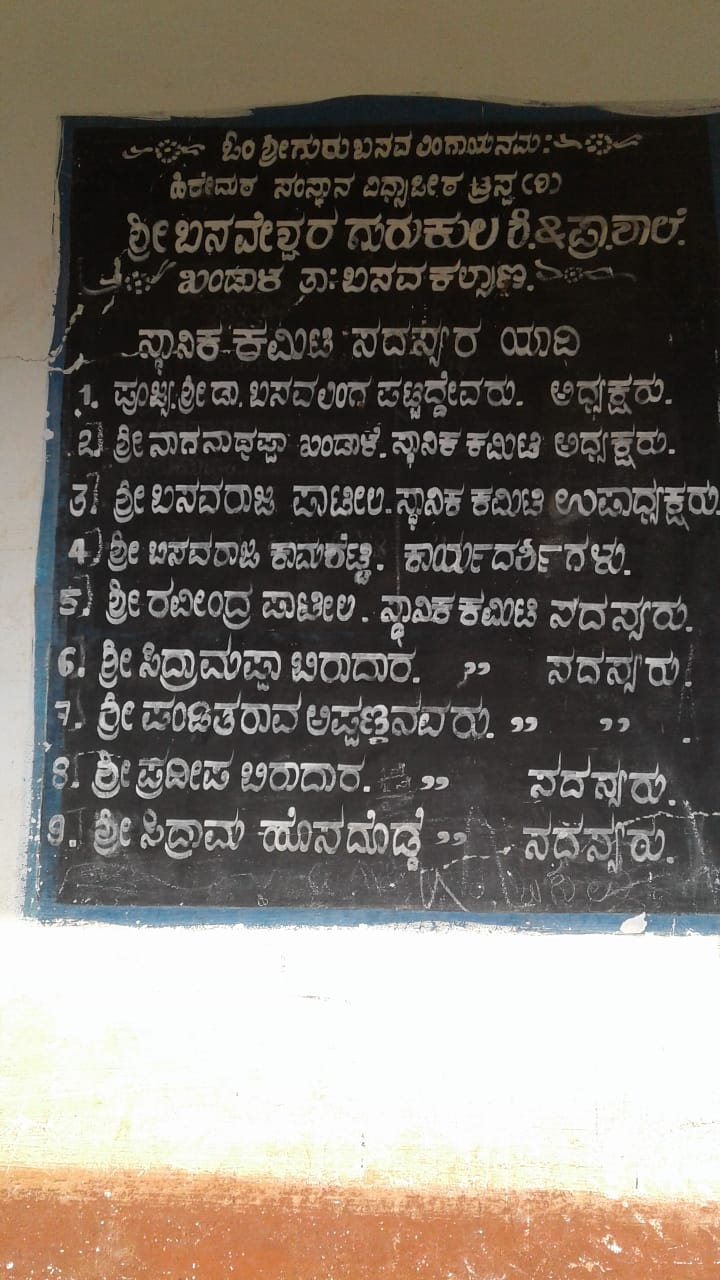 ಓಂ ಶ್ರೀಗುರು ಬಸವ ಲಿಂಗಾಯನಮಃ
ಹಿರೇಮಠ ಸಂಸ್ಥಾನ ವಿಧ್ಯಾಪೀಠ ಟ್ರಸ್ಟ (ರಿ)
ಶ್ರೀ ಬಸವೇಶ್ವರ ಗುರುಕುಲ ಕಿ.&ಪ್ರಾ.ಶಾಲೆ.
ಖಂಡಾಳ ತಾ: ಬಸವಕಲ್ಯಾಣ.
ಸ್ಥಾನಿಕ ಕಮಿಟಿ ಸದಸ್ಯರ ಯಾದಿ
1. ಪೂಜ್ಯ.ಶ್ರೀ ಡಾ. ಬಸವಲಿಂಗ ಪಟ್ಟದ್ದೇವರು. ಅಧ್ಯಕ್ಷರು.
2. ಶ್ರೀ ನಾಗನಾಥಪ್ಪಾ ಖಂಡಾಳೆ. ಸ್ಥಾನಿಕ ಕಮಿಟಿ ಅಧ್ಯಕ್ಷರು.
3. ಶ್ರೀ ಬಸವರಾಜ ಪಾಟೀಲ. ಸ್ಥಾನಿಕ ಕಮಿಟಿ ಉಪಾಧ್ಯಕ್ಷರು.
4. ಶ್ರೀ ಬಸವರಾಜ ಕಾಮಶೆಟ್ಟಿ. ಕಾರ್ಯದರ್ಶಿಗಳು.
5. ಶ್ರೀ ರವೀಂದ್ರ ಪಾಟೀಲ. ಸ್ಥಾನಿಕ ಕಮಿಟಿ ಸದಸ್ಯರು.
6. ಶ್ರೀ ಸಿದ್ರಾಮಪ್ಪಾ ಬಿರಾದಾರ. ” ಸದಸ್ಯರು.
7. ಶ್ರೀ ಪಂಡಿತರಾವ ಅಪ್ಪಣ್ಣನವರು. ” ” .
8. ಶ್ರೀ ಪ್ರದೀಪ ಬಿರಾದಾರ. ” ಸದಸ್ಯರು.
9. ಶ್ರೀ ಸಿದ್ರಾಮ ಹೊಸದೊಡ್ಡೆ ” ಸದಸ್ಯರು.